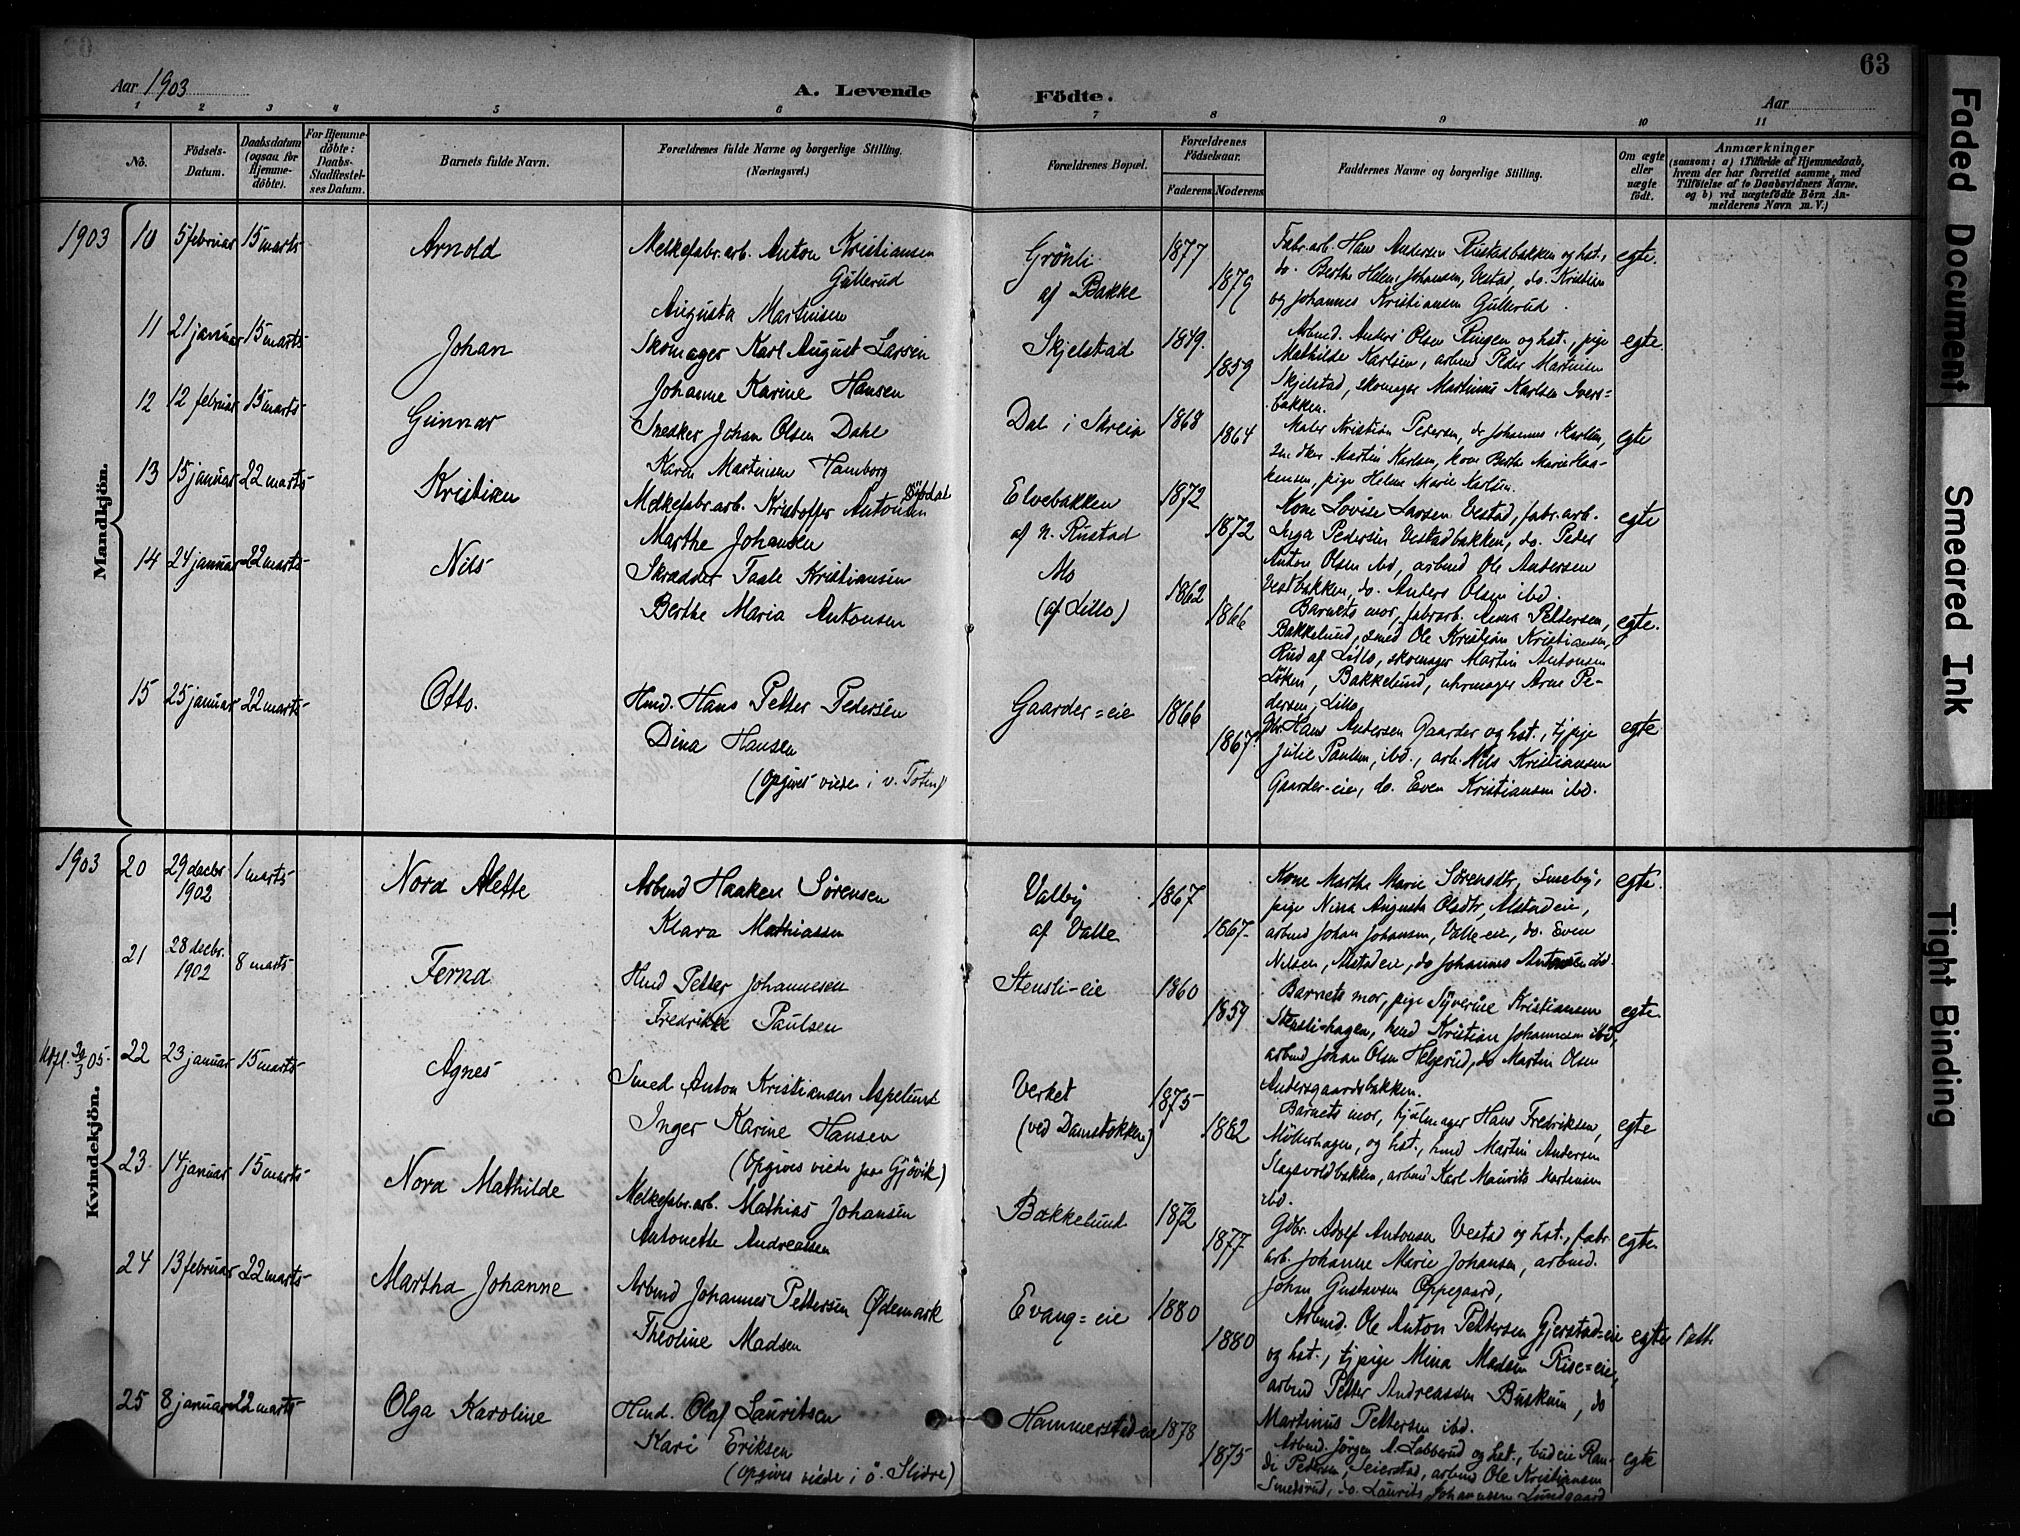 63
Aar 1903
A. Levende
Födte.
Aar
1 2 3 4 5 6 7 8 9 10 11
No.
Födsels-Datum.
Daabsdatum (ogsaa for Hjemme-döbte).
For Hjemme-döbte: Daabs-Stadfæstel-ses Datum.
Barnets fulde Navn.
Forældrenes fulde Navne og borgerlige Stilling.
(Næringsvei.)
Forældrenes Bopæl.
Forældrenes Födselsaar.
Faderens Moderens
Faddernes Navne og borgerlige Stilling.
Om ægte eller uægte födt.
Anmærkninger
(saasom: a) i Tilfælde af Hjemmedaab,
hvem der har forrettet samme, med
Tilföielse af to Daabsvidners Navne,
og b) ved uægtefödte Börn An-
melderens Navn m. V.)
Mandkjön.
1903 10 5 februar 15 marts
Arnold
Melkefabr.arb. Anton Kristiansen
Gullerud
Augusta Martinsen
Grönli
af Bakke
1877
1879
Fabr.arb. Hans Andersen Rustadbakken og hst.,
do. Berthe Helene Johansen, Vestad, do. Kristian
og Johannes Kristiansen Gullerud.
egte.
11 21 januar 15 marts
Johan
Skomager Karl August Larsen
Johanne Karine Hansen
Skjelstad
1849.
1859
Arbmd. Anders Olsen Ringen og hst., pige
Mathilde Karlsen, arbmd Peder Martinsen
Skjelstad, skomager Martinus Karlsen Ivers-
bakken.
egte.
12 12 februar 15 marts
Gunnar
Snedker Johan Olsen Dahl
Karen Martinsen Hamborg
Dal i Skreia
1868
1864
Maler Kristian Pedersen, do Johannes Karlsen,
snedker Martin Karlsen, kone Berthe Marie Haa-
kensen, pige Helene Marie Karlsen.
egte
13 15 januar 22 marts
Kristian
Melkefabr.arb. Kristoffer Antonsen
Marthe Johansen
Elvebakken
af n. Rustad
1872
1872
Kone Lovise Larsen Vestad, fabr.arb.
Inga Pedersen Vestadbakken, do. Peder
Anton Olsen ibd, arbmd Ole Andersen
Vestbakken, do. Anders Olsen ibd.
egte
14 24 januar 22 marts
Nils
Skrædder Taale Kristiansen
Berthe Maria Antonsen
Mo
(af Lillo)
1862
1866
Barnets mor, fabrarb. Anna Pettersen,
Bakkelund, smed Ole Kristian Kristiansen,
Rud af Lillo, skomager Martin Antonsen
Löken, Bakkelund, uhrmager Arne Pe-
dersen, Lillo
egte.
15 25 januar 22 marts
Otto.
Hmd. Hans Petter Pedersen
Dina Hansen
(opgives viede i v. Toten)
Gaarder=eie
1866
1867.
Gbr. Hans Andersen Gaarder og hst., tjpige
Julie Paulsen, ibd., arb. Nils Kristiansen
Gaarder-eie, do. Even Kristiansen ibd.
egte
Kvindekjön.
1903 20 29 decbr 1902 1 marts
Nora Alette
Arbmd Haaken Sörensen
Klara Mathiassen
Valby
af Valle
1867
1867.
Kone Marthe Marie Sörensdtr, Smeby,
pige Nina Augusta Olsdtr, Alstadeie,
arbmd Johan Johansen, Valle-eie, do. Even
Nilsen, Alstadeie, do Johannes Antonsen ibd.
egte.
21 28 decbr. 1902 8 marts
Ferna
Hmd Petter Johannesen
Fredrikke Paulsen
Stensli-eie
1860
1859
Barnets mor, pige Syverine Kristiansen
Stenslihagen, hmd Kristian Johannesen ibd,
arbmd Johan Olsen Helgerud, do Martin Olsen
Andersgaardsbakken.
egte.
Utfl. 30/3 05. 22 23 januar 15 marts
Agnes
Smed Anton Kristiansen Aspelund
Inger Karine Hansen
(opgives viede paa Gjövik)
Verket
(ved Damstokken)
1875
1862
Barnets mor, hjulmager Hans Fredriksen,
Möllerhagen, og hst., hmd Martin Andersen
Slagsvoldbakken, arbmd Karl Maurits Martinsen
ibd.
egte
23. 14 januar 15 marts
Nora Mathilde
Melkefabr.arb. Mathias Johansen
Antonette Andreassen
Bakkelund
1872
1877.
Gdbr. Adolf Antonsen Vestad og hst., fabr.
arb. Johanne Marie Johansen, arbmd.
Johan Gustavsen Oppegaard,
egte.
24 13 februar 22 marts
Martha Johanne
Arbmd Johannes Pettersen Ødemark
Theoline Madsen
Evang=eie
1880
1880
Arbmd. Ole Anton Pettersen Gjerstad=eie
og hst., tjpige Mina Madsen Rise=eie,
arbmd Petter Andreassen Buskum, do
Martinus Pettersen ibd.
egte
25 8 januar 22 marts
Olga Karoline
Hmd. Olaf Lauritsen
Kari Eriksen
(opgives viede i ö. Slidre)
Hammerstad=eie
1878
1875
Arbmd. Jörgen A. Labberud og hst., budeie Ran-
di Pedersen, Seierstad, arbmd Ole Kristiansen
Smedsrud, do. Laurits Johannesen Lundgaard
egte
Faded Document
Smeared Ink
Tight Binding